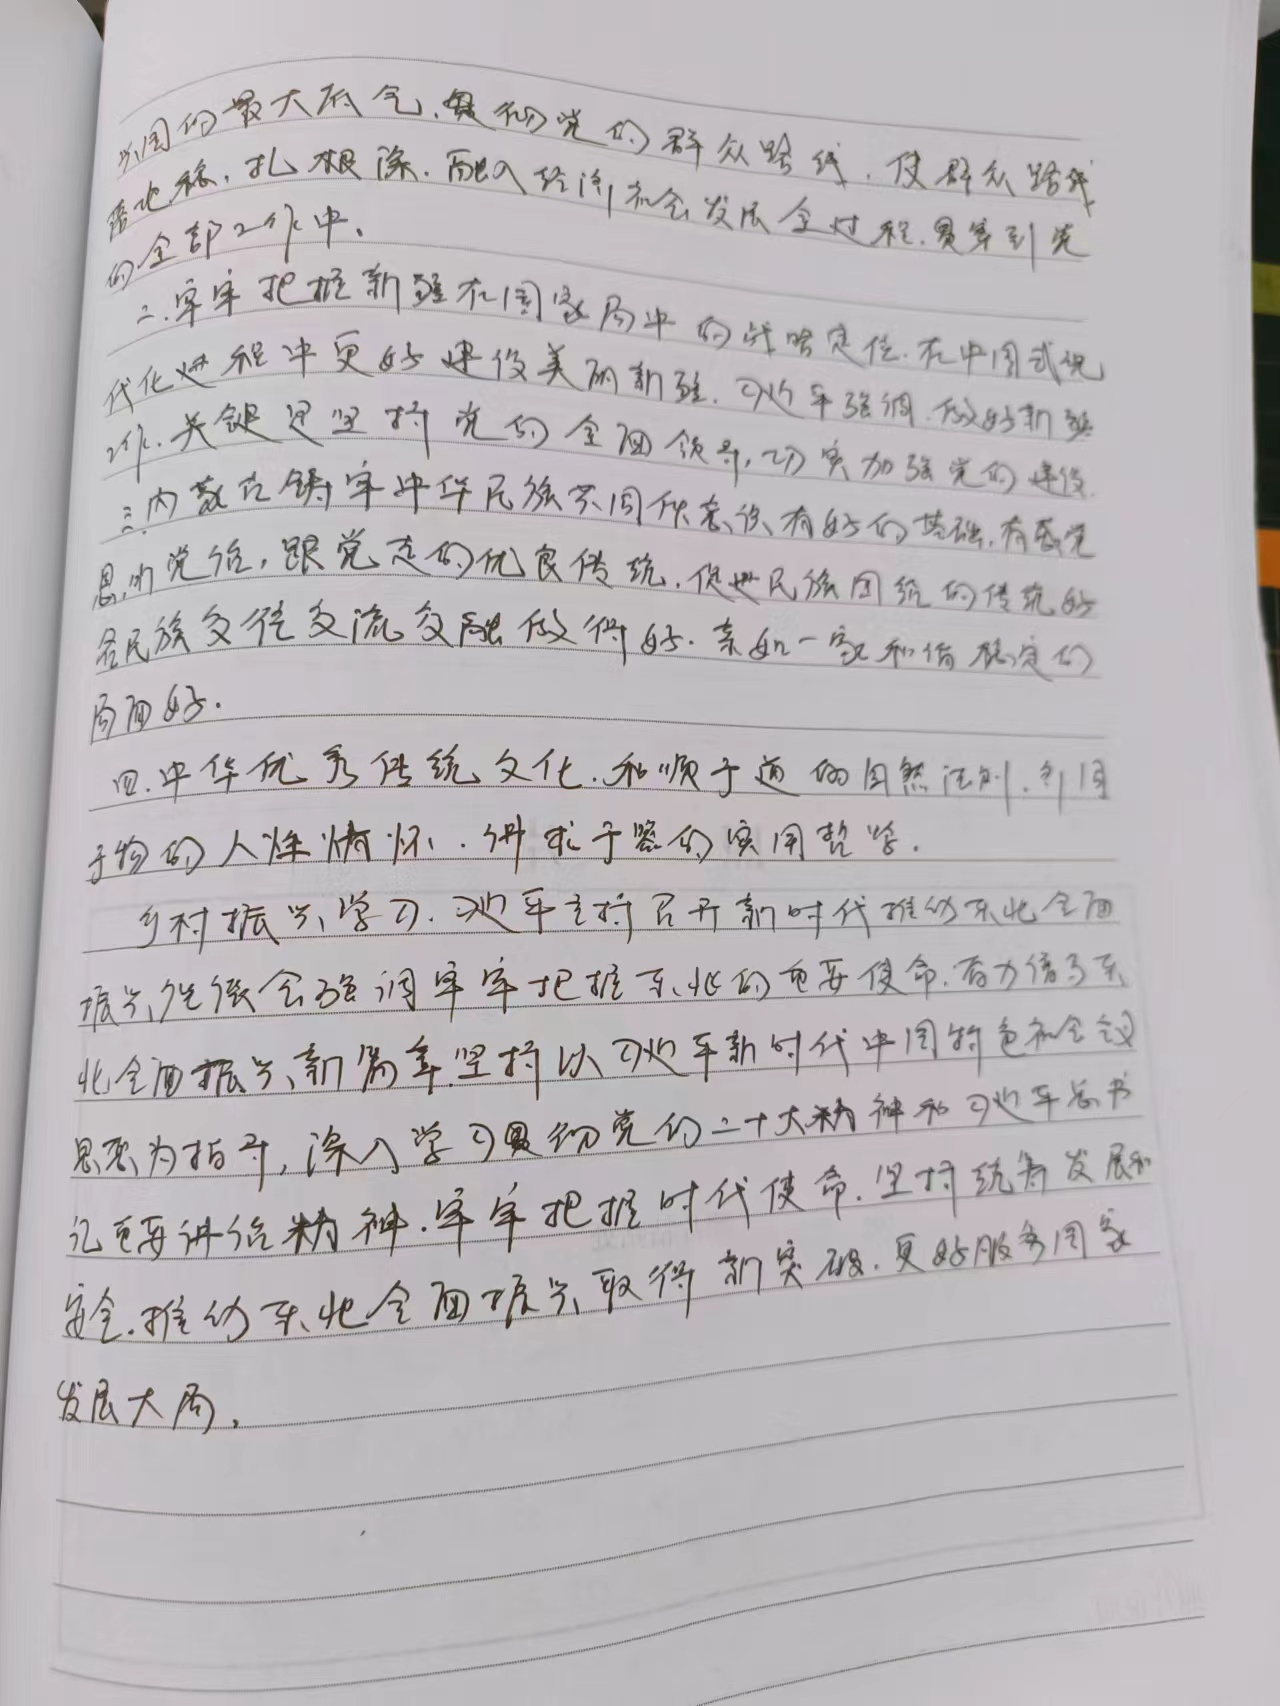 兴国的最大底气.贯彻党的群众路线.使群众路线
落地稳.扎根深.融入经济社会发展全过程.贯穿到党
的全部工作中.
二.牢牢把握新疆在国家局中的战略定位.在中国式现
代化进程中更好建设美丽新疆.习近平强调.做好新疆
工作.关键是坚持党的全面领导,切实加强党的建设.
三.内蒙古铸牢中华民族共同体意识有好的基础.有感党
恩.听党话,跟党走的优良传统.促进民族团结的传统好
各民族交往交流交融做得好.亲如一家和谐稳定的
局面好.
四.中华优秀传统文化.和顺于道的自然法则.利用
于物的人性情怀.讲求于器的实用哲学.
乡村振兴学习.习近平主持召开新时代推动东北全面
振兴座谈会强调牢牢把握东北的重要使命.奋力谱写东
北全面振兴新篇章.坚持以习近平新时代中国特色社会主义
思想为指导,深入学习贯彻党的二十大精神和习近平总书
记重要讲话精神.牢牢把握时代使命.坚持统筹发展和
安全.推动东北全面振兴取得新突破.更好服务国家
发展大局.